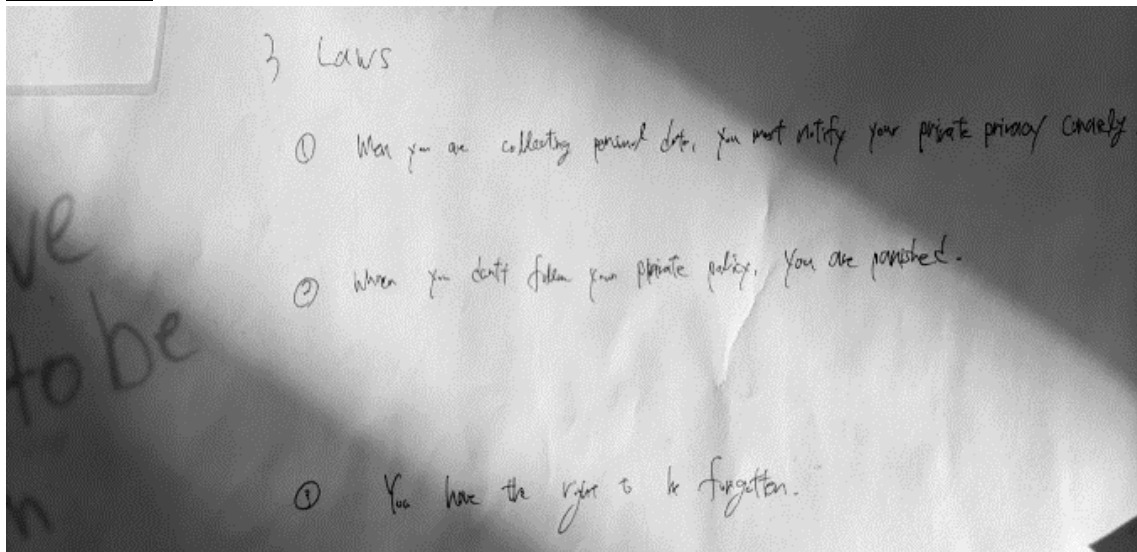 3 Laws
① When you are collecting personal data, you must notify your private privacy
② When you don't follow your private policy, you are panished.
③ You have the right to be forgotten.
ve
to be
n